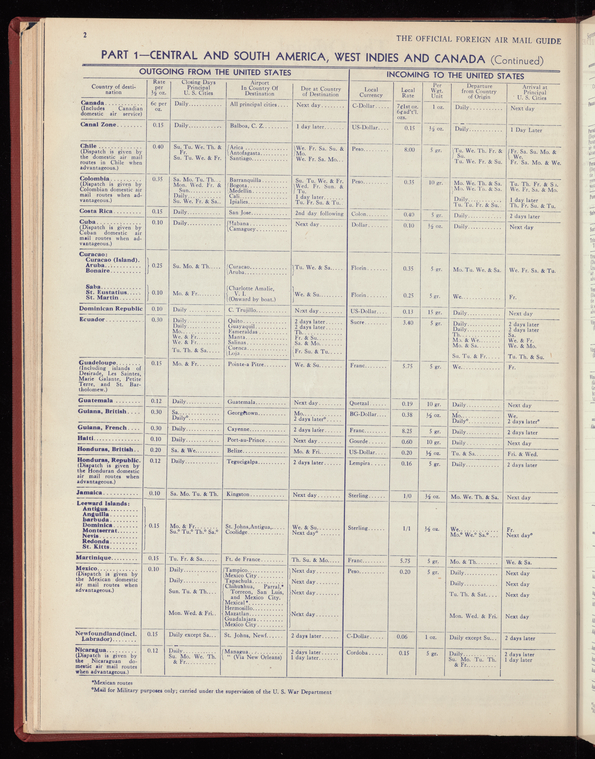 2
THE OFFICIAL FOREIGN AIR MAIL GUIDE
PART 1—CENTRAL AND SOUTH AMERICA, WEST INDIES AND CANADA (Continued)
OUTGOING FROM THE UNITED STATES
INCOMING TO THE UNITED STATES
Country of desti-
nation
Rate
per
½ oz.
Closing Days
Principal
U. S. Cities
Airport
In Country Of
Destination
Due at Country
of Destination
Local
Currency
Local
Rate
Per
Wgt.
Unit
Departure
from Country
of Origin
Arrival at
Principal
U. S. Cities
Canada
(Includes Canadian
domestic air service)
6c per
oz.
Daily
All principal cities
Next day
C-Dollar
1 oz.
Daily
Next day
Canal Zone 0.15 Daily Balboa, C. Z. 1 day later US-Dollar 0.15 ½ oz. Daily 1 Day Later
Chile
(Dispatch is given by
the domestic air mail
routes in Chile when
advantageous.)
0.40
Su. Tu. We. Th. &
Fr.
Su. Tu. We. & Fr.
Arica
Antofagasta
Santiago
We. Fr. Sa. Su. &
Mo.
We. Fr. Sa. Mo.
Peso
8.00
5 gr.
Tu. We. Th. Fr. &
Su.
Tu. We. Fr. & Su.
Fr. Sa. Su. Mo. &
We.
Fr. Sa. Mo. & We.
Colombia
(Dispatch is given by
Colombian domestic air
mail routes when ad-
vantageous.)
0.35
Sa. Mo. Tu. Th.
Mon. Wed. Fr. &
Sun.
Daily
Su. We. Fr. & Sa.
Barranquilla
Bogota
Medellin
Cali
Ipiales
Su. Tu. We. & Fr.
Wed. Fr. Sun. &
Tu.
1 day later
Tu. Fr. Su. & Tu.
Peso
0.35
10 gr.
Mo. We. Th. & Sa.
Mo. We. Th. & Sa.
Daily
Tu. Th. Fr. & Su.
1 day later
Th. Fr. Su. & Tu.
Costa Rica 0.15 Daily San Jose 2nd day following Colon 0.40 5 gr. Daily 2 days later
Cuba
(Dispatch is given by
Cuban domestic air
mail routes when ad-
vantageous.)
0.10
Daily
Habana
Camaguey
Next day
Dollar
0.10
½ oz.
Daily
Next day
Curacao:
Curacao (Island)
Aruba
Bonaire
0.25
Su. Mo. & Th.
Curacao
Aruba
Tu. We. & Sa.
Florin
0.35
5 gr.
Mo. Tu. We. & Sa.
We. Fr. Sa. & Tu.
Saba
St. Eustatius
St. Martin
0.10
Mo. & Fr.
Charlotte Amalie,
V. I.
(Onward by boat.)
We. & Su.
Florin
0.25
5 gr.
We.
Fr.
Dominican Republic 0.10 Daily C. Trujillo Next day US-Dollar 0.13 15 gr. Daily Next day
Ecuador
0.30
Daily
Daily
Mo.
We. & Fr.
We. & Fr.
Tu. Th. & Sa.
Quito
Guayaquil
Esmeraldas
Manta
Salinas
Cuenca
Loja
2 days later
2 days later
Th.
Fr. & Su.
Sa. & Mo.
Fr. Su. & Tu.
Sucre
3.40
5 gr.
Daily
Daily
Th.
Mo. & We.
Mo. & Sa.
Su. Tu. & Fr.
2 days later
2 days later
Sa.
We. & Fr.
We. & Mo.
Tu. Th. & Su.
Guadeloupe
(Including islands of
Desirade, Les Saintes,
Marie Galante, Petite
Terre, and St. Bar-
tholomew.)
0.15
Mo. & Fr.
Pointe-a-Pitre
We. & Su.
Franc
5.75
5 gr.
We.
Fr.
Guatemala 0.12 Daily Guatemala Next day Quetzal 0.19 10 gr. Daily Next day
Guiana, British
0.30
Sa.
Daily*
Georgetown
Mo.
2 days later*
BG-Dollar
0.38
½ oz.
Mo.
Daily*
We.
2 days later*
Guiana, French 0.30 Daily Cayenne 2 days later Franc 8.25 5 gr. Daily 2 days later
Haiti 0.10 Daily Port-au-Prince Next day Gourde 0.60 10 gr. Daily Next day
Honduras, British 0.20 Sa. & We. Belize Mo. & Fri. US-Dollar 0.20 ½ oz. Tu. & Su. Fri. & Wed.
Honduras, Republic.
(Dispatch is given by
the Honduran domestic
air mail routes when
advantageous.)
0.12
Daily
Tegucigalpa
2 days later
Lempira
0.16
5 gr.
Daily
2 days later
Jamaica 0.10 Sa. Mo. Tu. & Th. Kingston Next day Sterling 1/0 ½ oz. Mo. We. Th. & Sa. Next day
Leeward Islands:
Antigua
Anguilla
Barbuda
Dominica
Montserrat
Nevis
Redonda
St. Kitts
0.15
Mo. & Fr.
Su.* Tu.* Th.* Sa.*
St. Johns, Antigua
Coolidge
We. & Su.
Next day*
Sterling
1/1
½ oz.
We.
Mo.* We.* Sa.*
Fr.
Next day*
Martinique 0.15 Tu. Fr. & Su. Ft. de France Th. Su. & Mo. Franc 5.75 5 gr. Mo. & Th. We. & Sa.
Mexico
(Dispatch is given by
the Mexican domestic
air mail routes when
advantageous.)
0.10
Daily
Daily
Sun. Tu. & Th.
Mon. Wed. & Fri.
Tampico
Mexico City
Tapachula
Chihuahua, Parral,*
Torreon, San Luis,
and Mexico City.
Mexicali*
Hermosillo
Mazatlan
Guadalajara
Mexico City
Next day
Next day
Next day
Next day
Peso
0.20
5 gr.
Daily
Daily
Tu. Th. & Sat.
Mon. Wed. & Fri.
Next day
Next day
Next day
Next day
Newfoundland (incl.
Labrador)
0.15
Daily except Sa.
St. Johns, Newf.
2 days later
C-Dollar
0.06
1 oz.
Daily except Su.
2 days later
Nicaragua
(Dispatch is given by
the Nicaraguan do-
mestic air mail routes
when advantageous.)
0.12
Daily
Su. Mo. We. Th.
& Fr.
Managua
" (Via New Orleans)
2 days later
1 day later
Cordoba
0.15
5 gr.
Daily
Su. Mo. Tu. Th.
& Fr.
2 days later
1 day later
*Mexican routes
*Mail for Military purposes only; carried under the supervision of the U. S. War Department